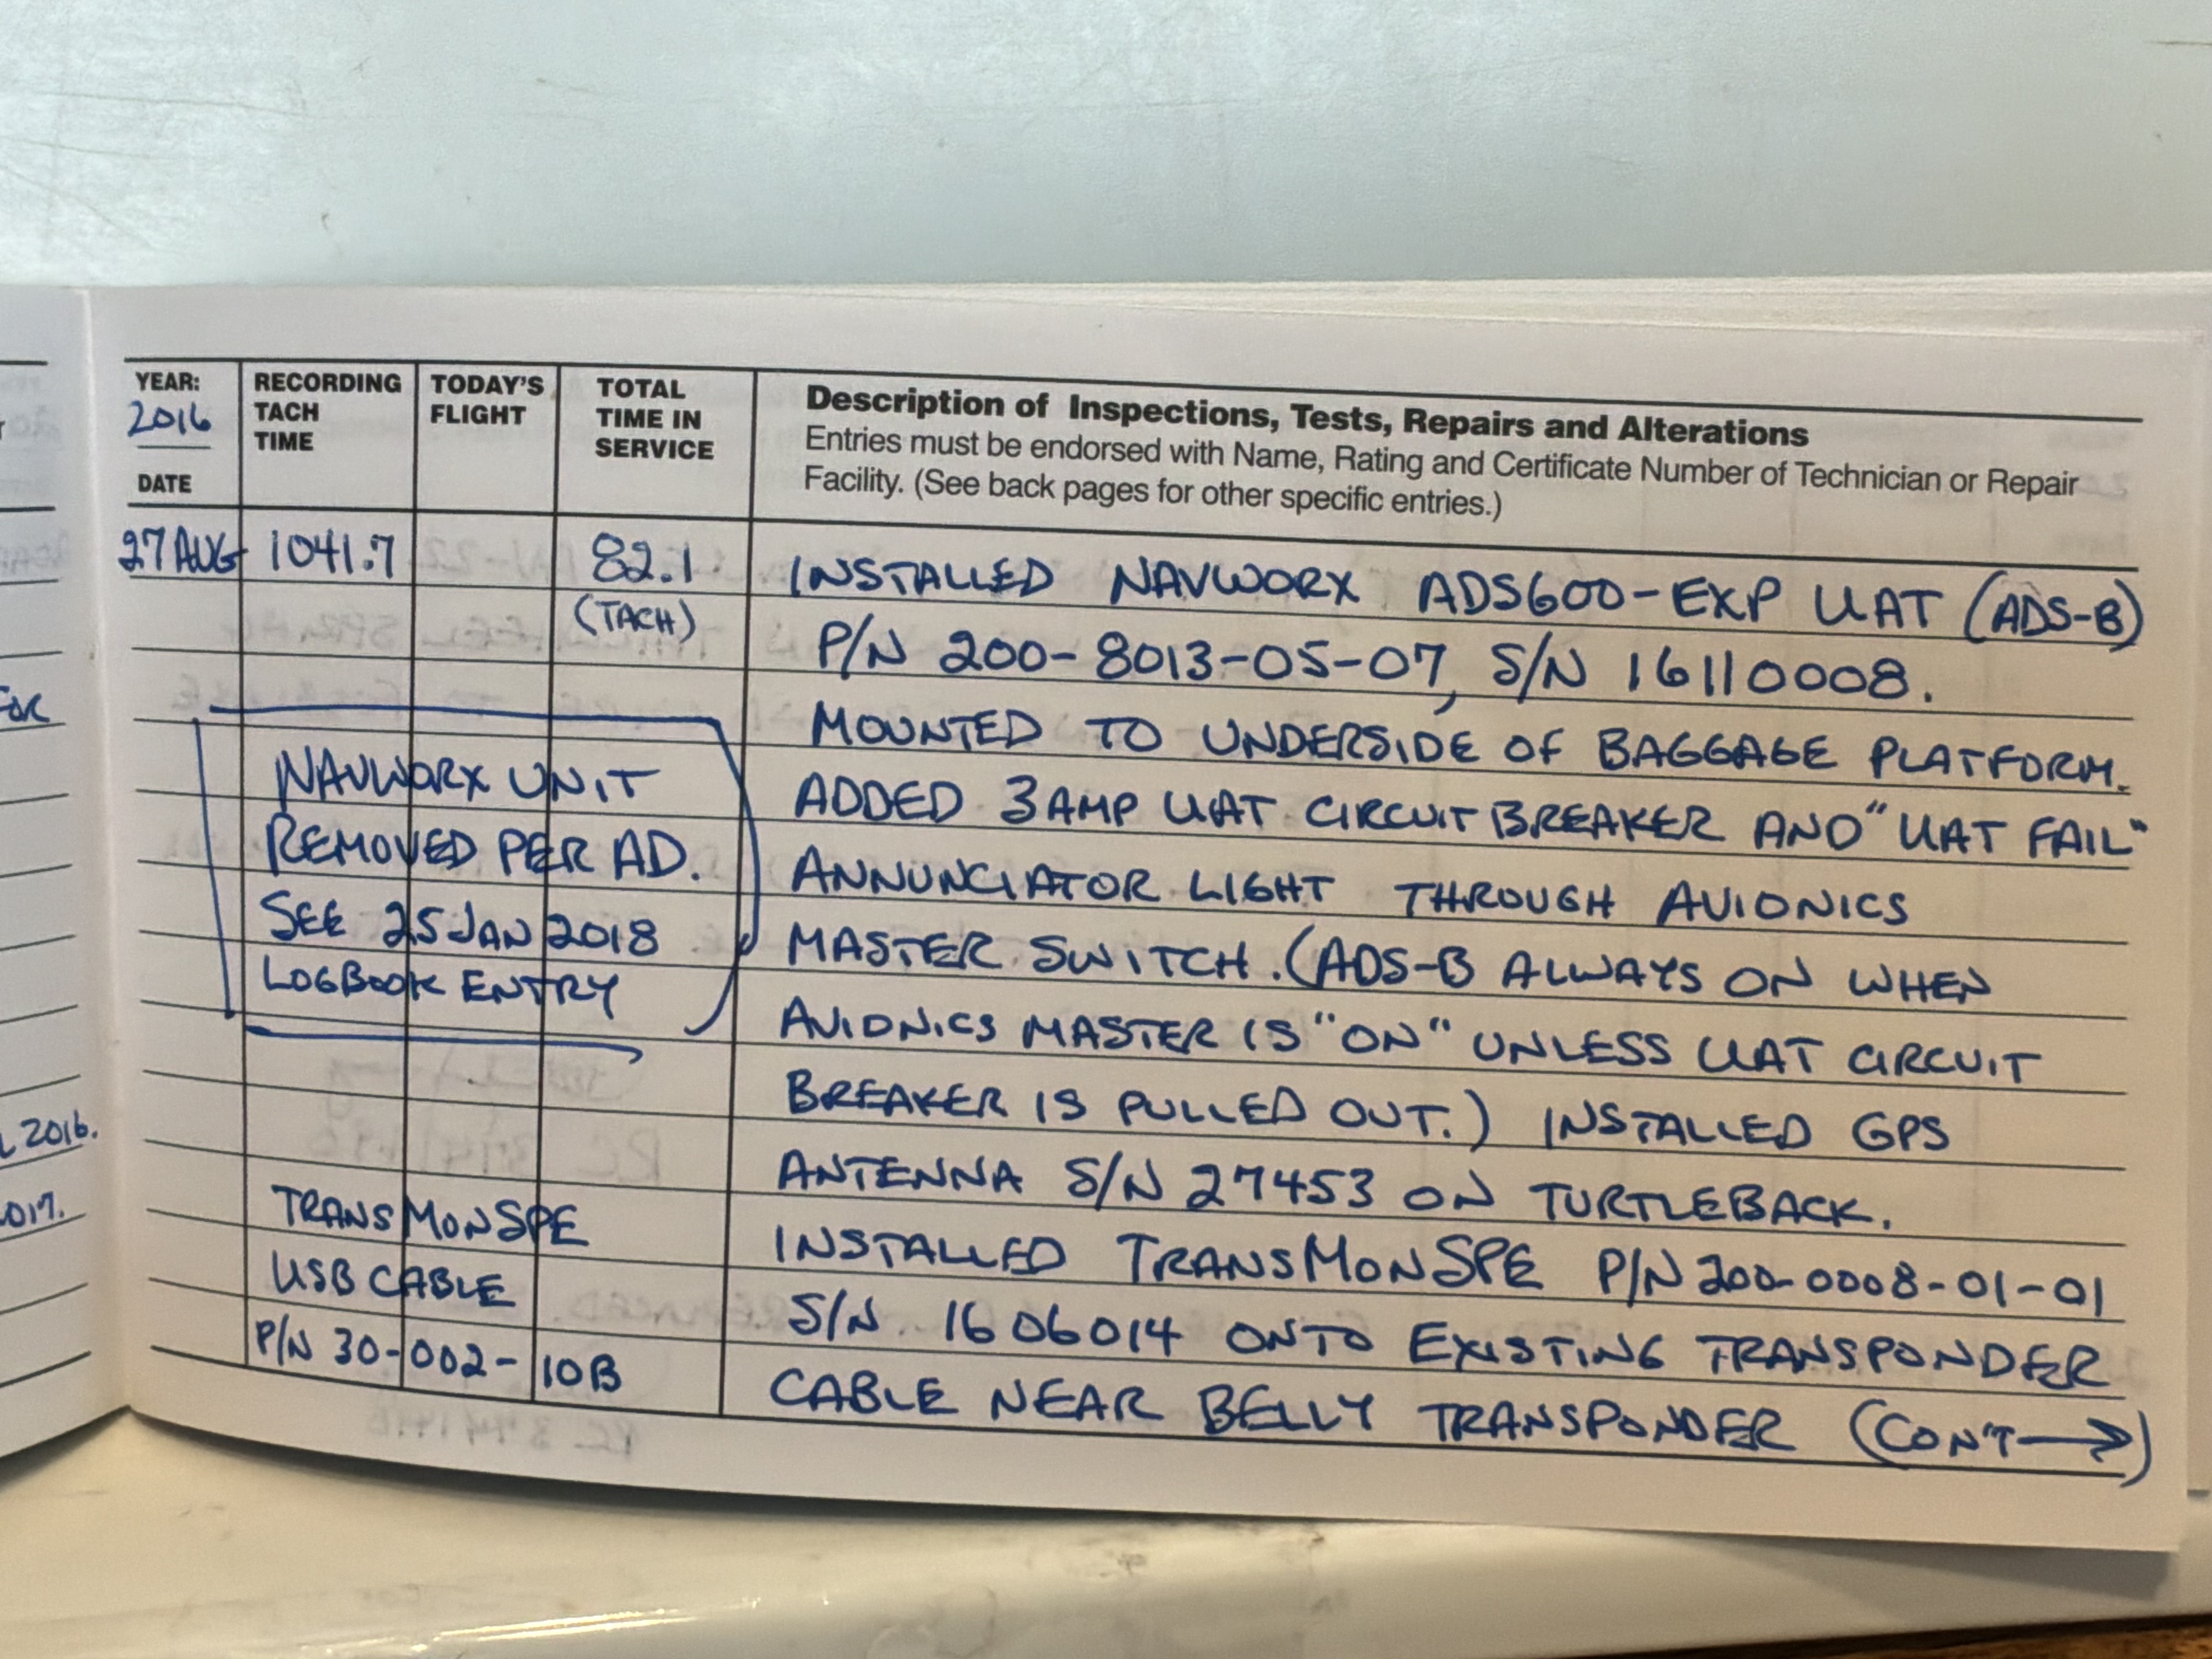 YEAR:
2016
DATE
RECORDING
TACH
TIME
TODAY'S
FLIGHT
TOTAL
TIME IN
SERVICE
Description of Inspections, Tests, Repairs and Alterations
Entries must be endorsed with Name, Rating and Certificate Number of Technician or Repair
Facility. (See back pages for other specific entries.)
27 AUG 1041.7 82.1
(TACH)
INSTALLED NAVWORX ADS600-EXP UAT (ADS-B)
P/N 200-8013-05-07, S/N 16110008.
MOUNTED TO UNDERSIDE OF BAGGAGE PLATFORM.
ADDED 3 AMP UAT CIRCUIT BREAKER AND "UAT FAIL"
ANNUNCIATOR LIGHT THROUGH AVIONICS
MASTER SWITCH. (ADS-B ALWAYS ON WHEN
AVIONICS MASTER IS "ON" UNLESS UAT CIRCUIT
BREAKER IS PULLED OUT.) INSTALLED GPS
ANTENNA S/N 27453 ON TURTLEBACK.
INSTALLED TRANSMONSPE P/N 200-0008-01-01
S/N 1606014 ONTO EXISTING TRANSPONDER
CABLE NEAR BELLY TRANSPONDER (CON'T→)
NAVWORX UNIT
REMOVED PER AD.
SEE 25 JAN 2018
LOGBOOK ENTRY
TRANSMONSPE
USB CABLE
P/N 30-002-10B
2016.